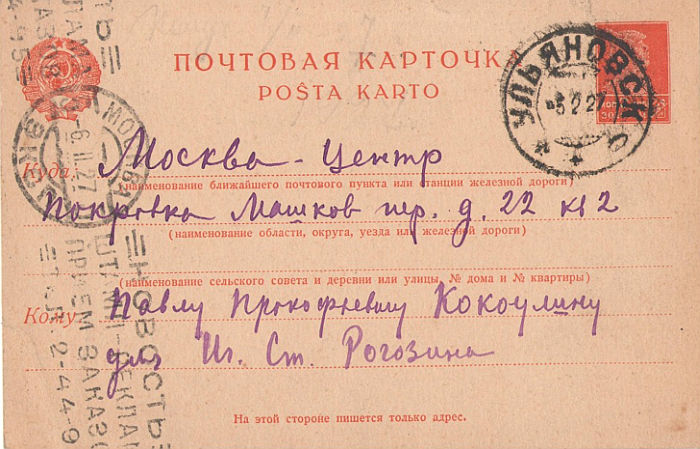 ПОЧТОВАЯ КАРТОЧКА
POŜTA KARTO
УЛЬЯНОВСК
5 2 27
МОСКВА
6.II.27
Куда, Москва - Центр
(наименование ближайшего почтового пункта или станции железной дороги)
Покровка Машков пер. д. 22 кв 2
(наименование области, округа, уезда или железной дороги)
(наименование сельского совета и деревни или улицы, № дома и № квартиры)
Кому, Павлу Прокофьевичу Кокоулину
для Иг. Ст. Рогозина
На этой стороне пишется только адрес.
НОВОСТЬ
ПРИЕМ ЗАКАЗО
2-44-9